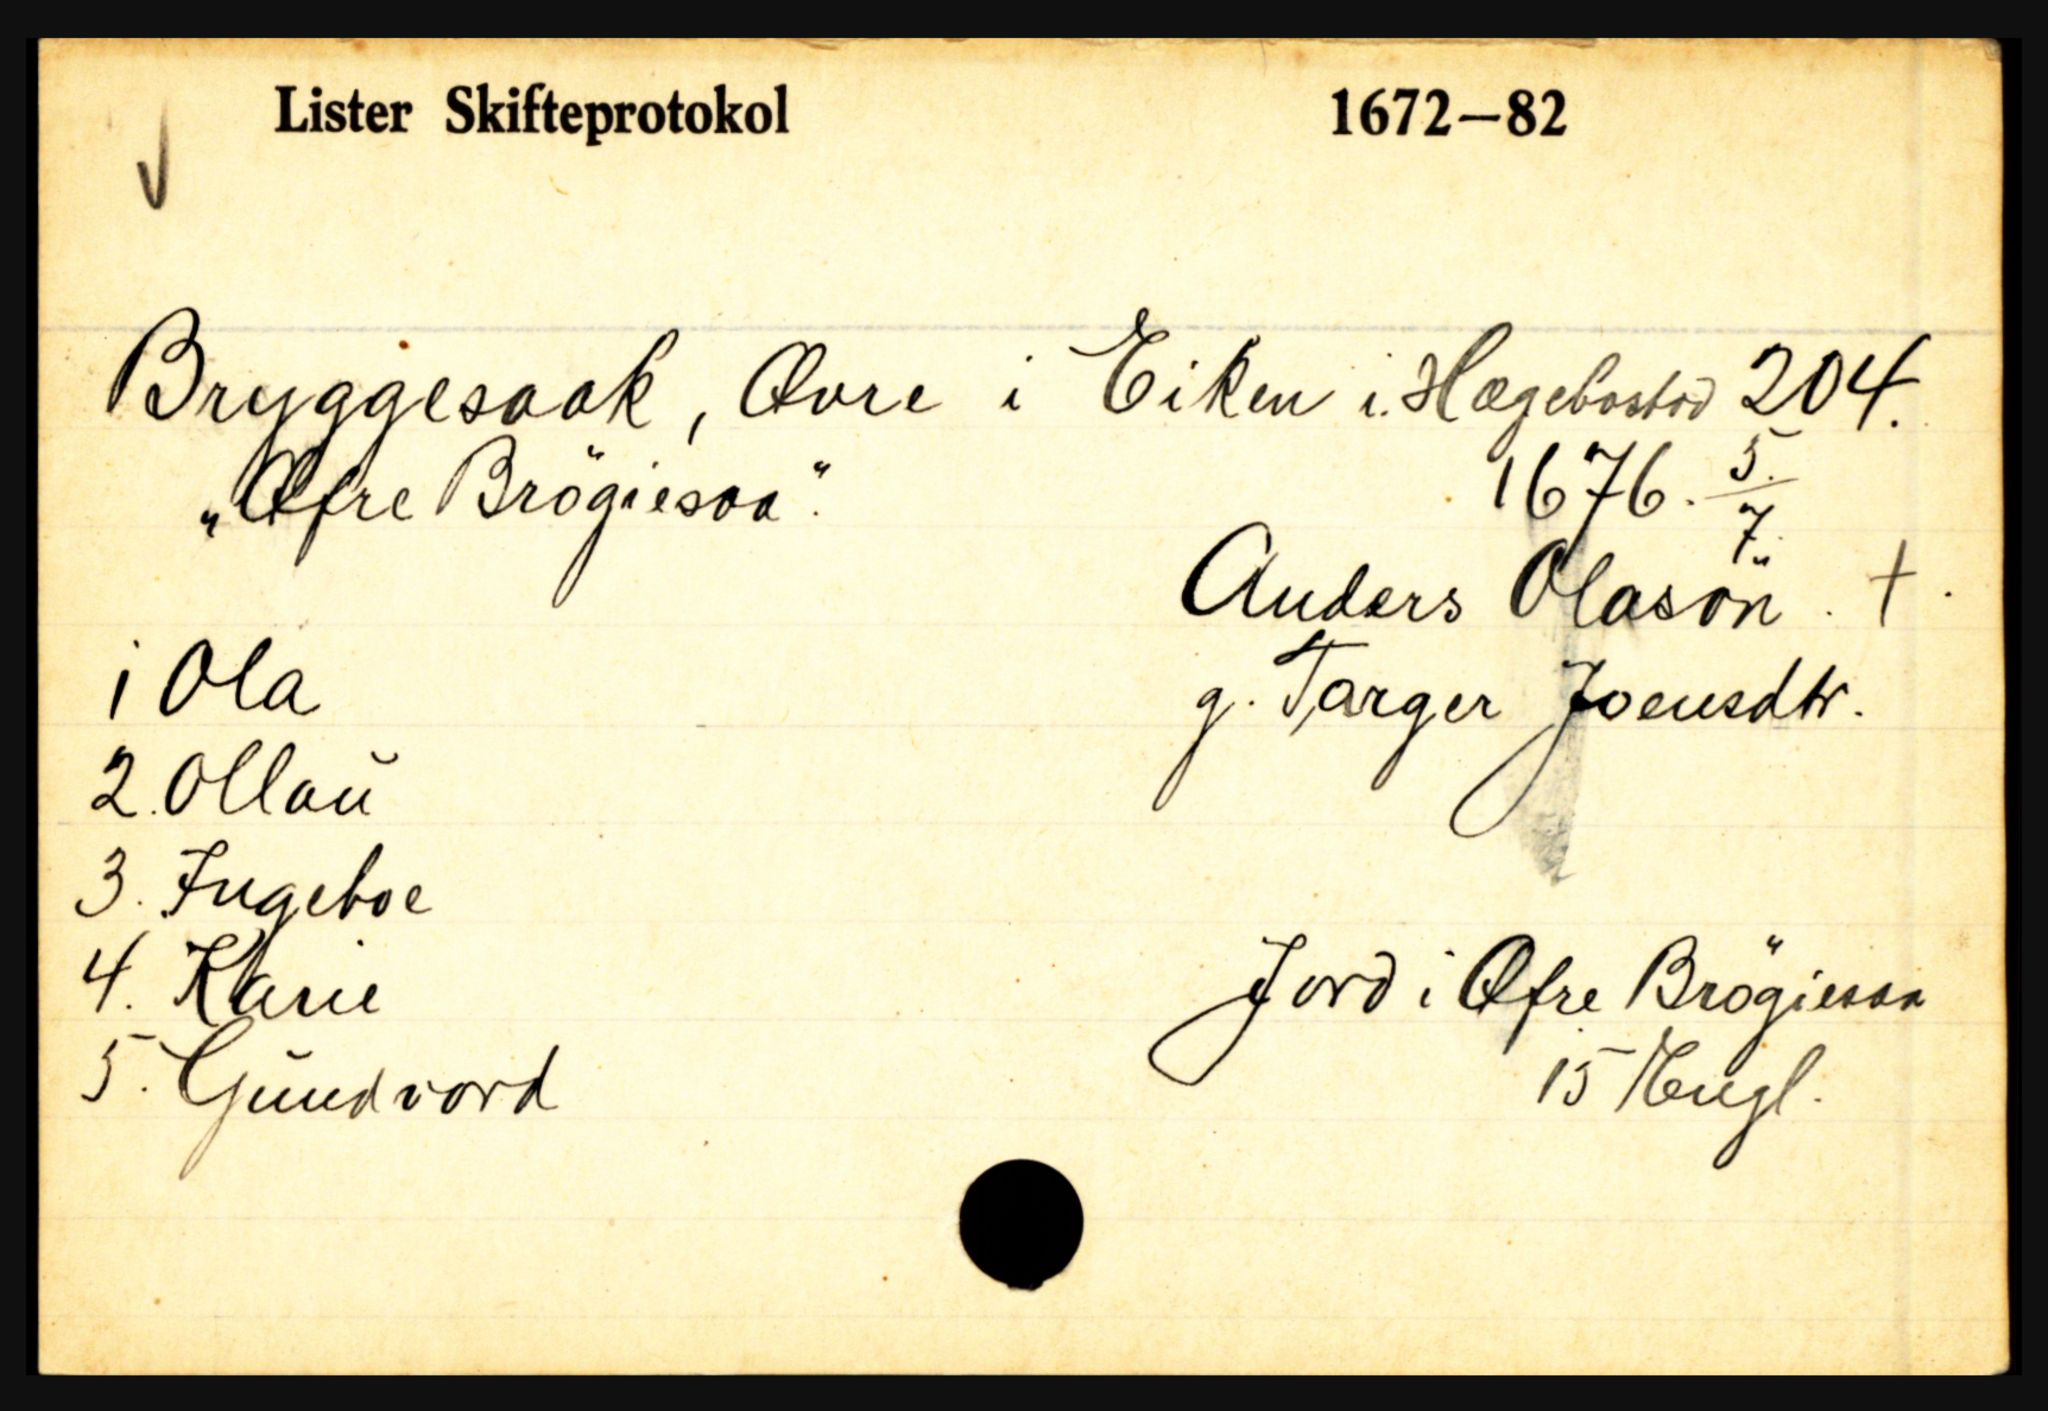 Lister Skifteprotokol 1672—82
Bryggesaak, Øvre i Eiken i. Hægebostad 204.
„Øfre Brögiesaa". 1676. 5/7.
Anders Olasön. †.
1 Ola g. Targer Joensdtr.
2. Ollau
3. Ingeboe
4. Karie Jord i Øfre Brögiesaa
5. Gundvord 15 Engl.